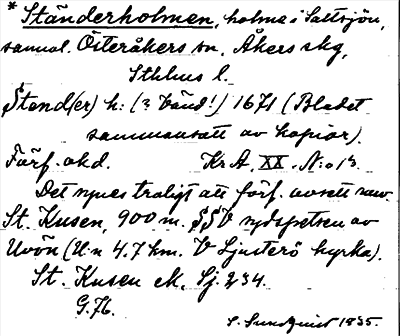 * Ständerholmen, holme i Saltsjön,
samml. Österåkers sn, Åkers skg,
Sthlms l.
Stend(er) h: (? bänd!) 1671 (Bladet
sammansatt av kopior).
Förf. okd. KrA, XX. N:o 13.
Det synes troligt att förf. avsett
St. Kusen, 900 m. SSV sydspetsen av
Uvön (U:n 4.7 km. V Ljusterö kyrka).
St. Kusen eK, Sj. 234.
G. 76.
S. Sundquist 1935.